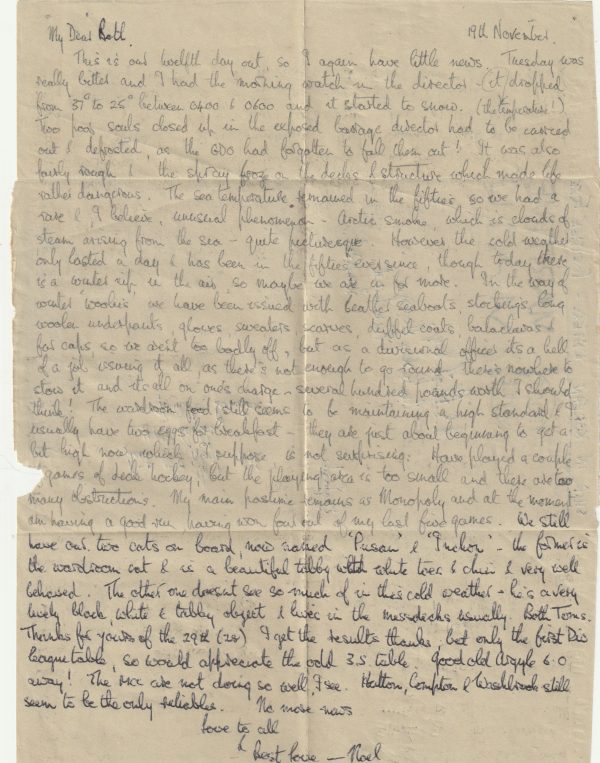 My Dear Beth. 19th November.
This is our twelfth day out, so I again have little news. Tuesday was
really bitter and I had the morning watch in the director - (it) dropped
from 37° to 25° between 0400 & 0600 and it started to snow. (the temperature!)
Two poor souls closed up in the exposed barrage director had to be carried
out & defrosted, as the GDO had forgotten to fall them out! It was also
fairly rough & the spray froze on the decks & structure which made life
rather dangerous. The sea temperature remained in the fifties, so we had a
rare & I believe, unusual phenomenon - Arctic smoke, which is clouds of
steam arising from the sea - quite picturesque. However the cold weather
only lasted a day & has been in the fifties ever since, though today there
is a winter nip in the air, so maybe we are in for more. In the way of
winter woolies we have been issued with leather seaboots, stockings, long
woolen underpants, gloves, sweaters, scarves, duffel coats, balaclavas &
fur caps so we aren't too badly off, but as a divisional officer its a hell
of a job issuing it all, as there's not enough to go round. There's nowhere to
stow it and its all on one's charge - several hundred pounds worth I should
think! The wardroom food still seems to be maintaining a high standard & I
usually have two eggs for breakfast - they are just about beginning to get a
bit high now, which I suppose is not surprising. Have played a couple
of games of deck hockey, but the playing area is too small and there are too
many obstructions. My main pastime remains as Monopoly and at the moment
am having a good run having won four out of my last five games. We still
have our two cats on board, now named 'Pusan' & 'Inchon' - the former is
the wardroom cat & is a beautiful tabby with white toes & chin & very well
behaved. The other one doesnt see so much of in this cold weather - he's a very
lively black, white & tabby object & lives in the messdecks usually. Both Toms.
Thanks for yours of the 29th (28) I get the results thanks, but only the first Div
league table, so would appreciate the odd 3.S table. Good old Argyle 6.0
away! The MCC are not doing so well, I see. Hutton, Compton & Washbrook still
seem to be the only reliables. No more news
Love to all
& Best love - Noel